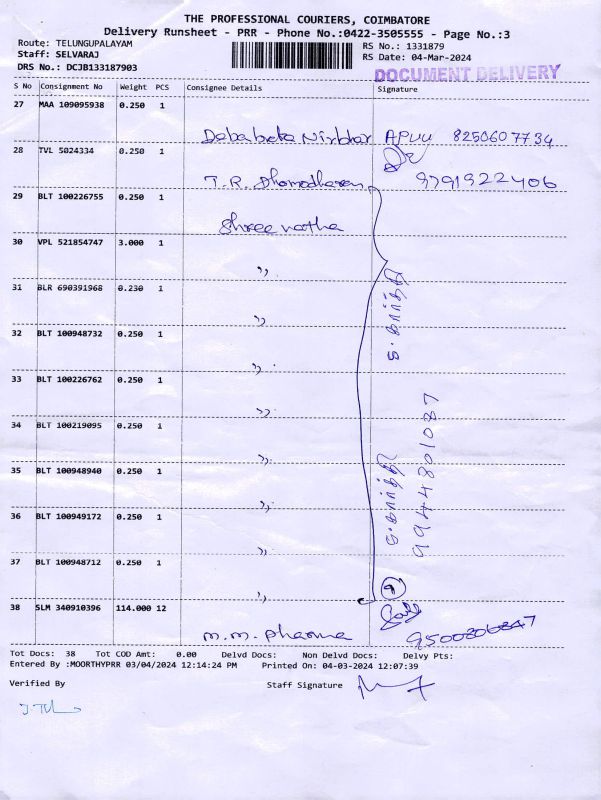 THE PROFESSIONAL COURIERS, COIMBATORE
Delivery Runsheet - PRR - Phone No.:0422-3505555 - Page No.:3
Route: TELUNGUPALAYAM
RS No.: 1331879
Staff: SELVARAJ
RS Date: 04-Mar-2024
DRS No.: DCJB133187903
DOCUMENT DELIVERY
S No Consignment No Weight PCS Consignee Details Signature
27 MAA 109095938 0.250 1
Debabeta Nirbhar APUU 8250607734
28 TVL 5024334 0.250 1
T.R. Dhamodharan 9791922406
29 BLT 100226755 0.250 1
Shree natha
30 VPL 521854747 3.000 1
,,
31 BLR 690391968 0.230 1
,,
32 BLT 100948732 0.250 1
,,
33 BLT 100226762 0.250 1
,,
34 BLT 100219095 0.250 1
,,
35 BLT 100948940 0.250 1
,,
36 BLT 100949172 0.250 1
,,
37 BLT 100948712 0.250 1
,,
ந. கார்த்தி
ந. கார்த்தி
9944801087
9
38 SLM 340910396 114.000 12
M.M. Pharma 9500806847
Tot Docs: 38 Tot COD Amt: 0.00 Delvd Docs: Non Delvd Docs: Delvy Pts:
Entered By :MOORTHYPRR 03/04/2024 12:14:24 PM Printed On: 04-03-2024 12:07:39
Verified By Staff Signature